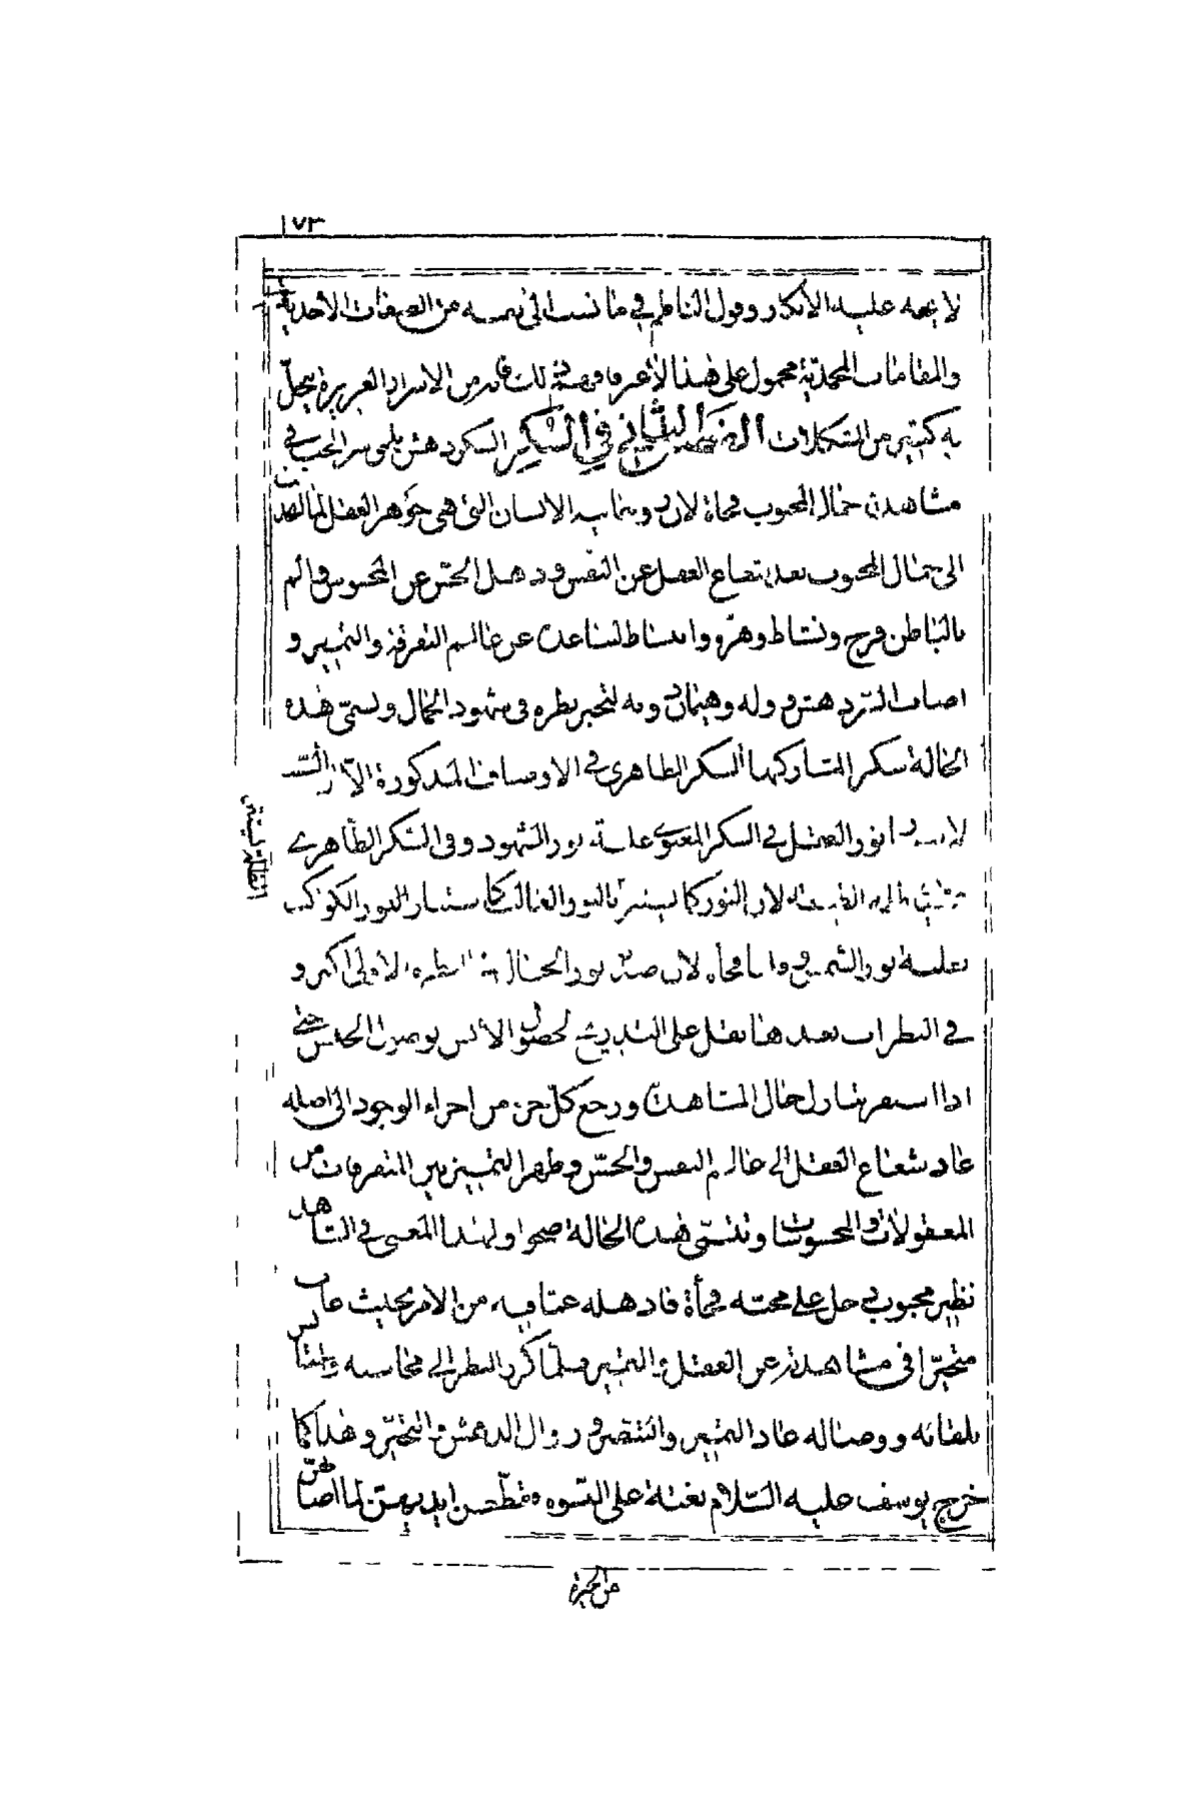 ١٧٣
لا يتجه عليه الانكار وقول الناظم في ما نسب الى نفسه من الصفات الاحدية
والمقامات المحمدية محمول على هذا لا غير من الاسرار العزيزة ينحل
به كثير من المشكلات الفصل الثاني في السكر السكر دهش يلحق سر المحب في
مشاهدة جمال المحبوب فجأة لان روحانية الانسان التي هي جوهر العقل لما انجذبت
الى جمال المحبوب بعد شعاع العقل عن النفس وذهل الحس عن المحسوس والم
بالباطن فرح ونشاط وهزة وانبساط لتباعده عن عالم التفرقة والتمييز و
اصاب السر دهش ووله وهيمان وبه لتحير نظره في شهود الجمال وتسمى هذه
الحالة سكر المشاركتها السكر الظاهري في الاوصاف المذكورة الا ان السبب
لاستتار نور العقل في السكر المعنوي غلبة نور الشهود وفي السكر الظاهري
الطبيعة لان النور كما يستتر بالنور الغالب كاستتار النور الكوكب
بغلبة نور الشمس وانما فجأة لان صدمة نور الجمال الاولى اكبر و
في النظرات بعدها تقل على التدريج لحصول الانس بوصول الجنس حتى
اذا استقر نازل حال المشاهدة ورجع كل جزء من اجزاء الوجود الى اصله
عاد شعاع العقل الى عالم النفس والحس وظهر التمييز بين المتفرقات من
المعقولات والمحسوسات وتسمى هذه الحالة صحوا ولهذا المعنى في الشاهد
نظير محبوب دخل على محبه فجأة فادهله عما فيه من الامر بحيث غاب
متحيرا في مشاهدته عن العقل والتمييز فلما كرر النظر الى محاسنه واستانس
بلقائه ووصاله عاد التمييز والتبصر وزوال الدهش والتحير وهذا كما
خرج يوسف عليه السلام بغتة على النسوة وقطعن ايديهن لما اصابهن
الظلمة
من الحيرة